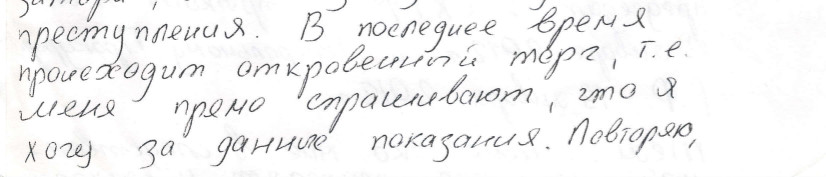 преступления. В последнее время
происходит откровенный торг, т.е.
меня прямо спрашивают, что я
хочу за данные показания. Повторяю,